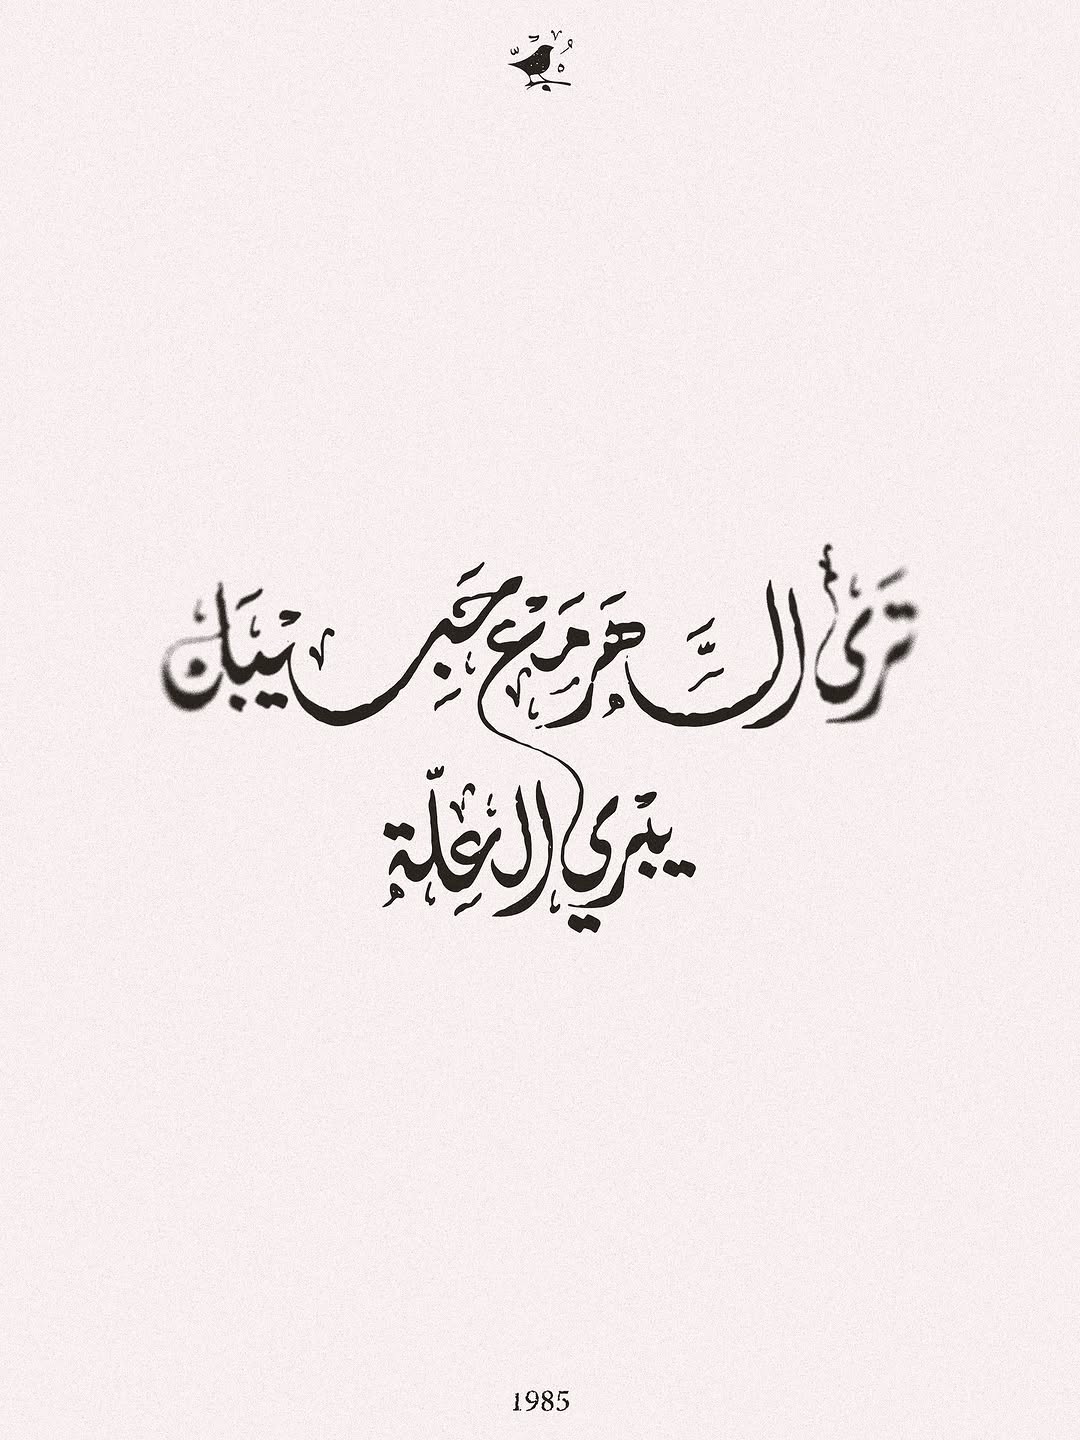 تَرَىٰ السَّهَر مَعْ حَبِيْبَان
يبْري العِلّة
1985